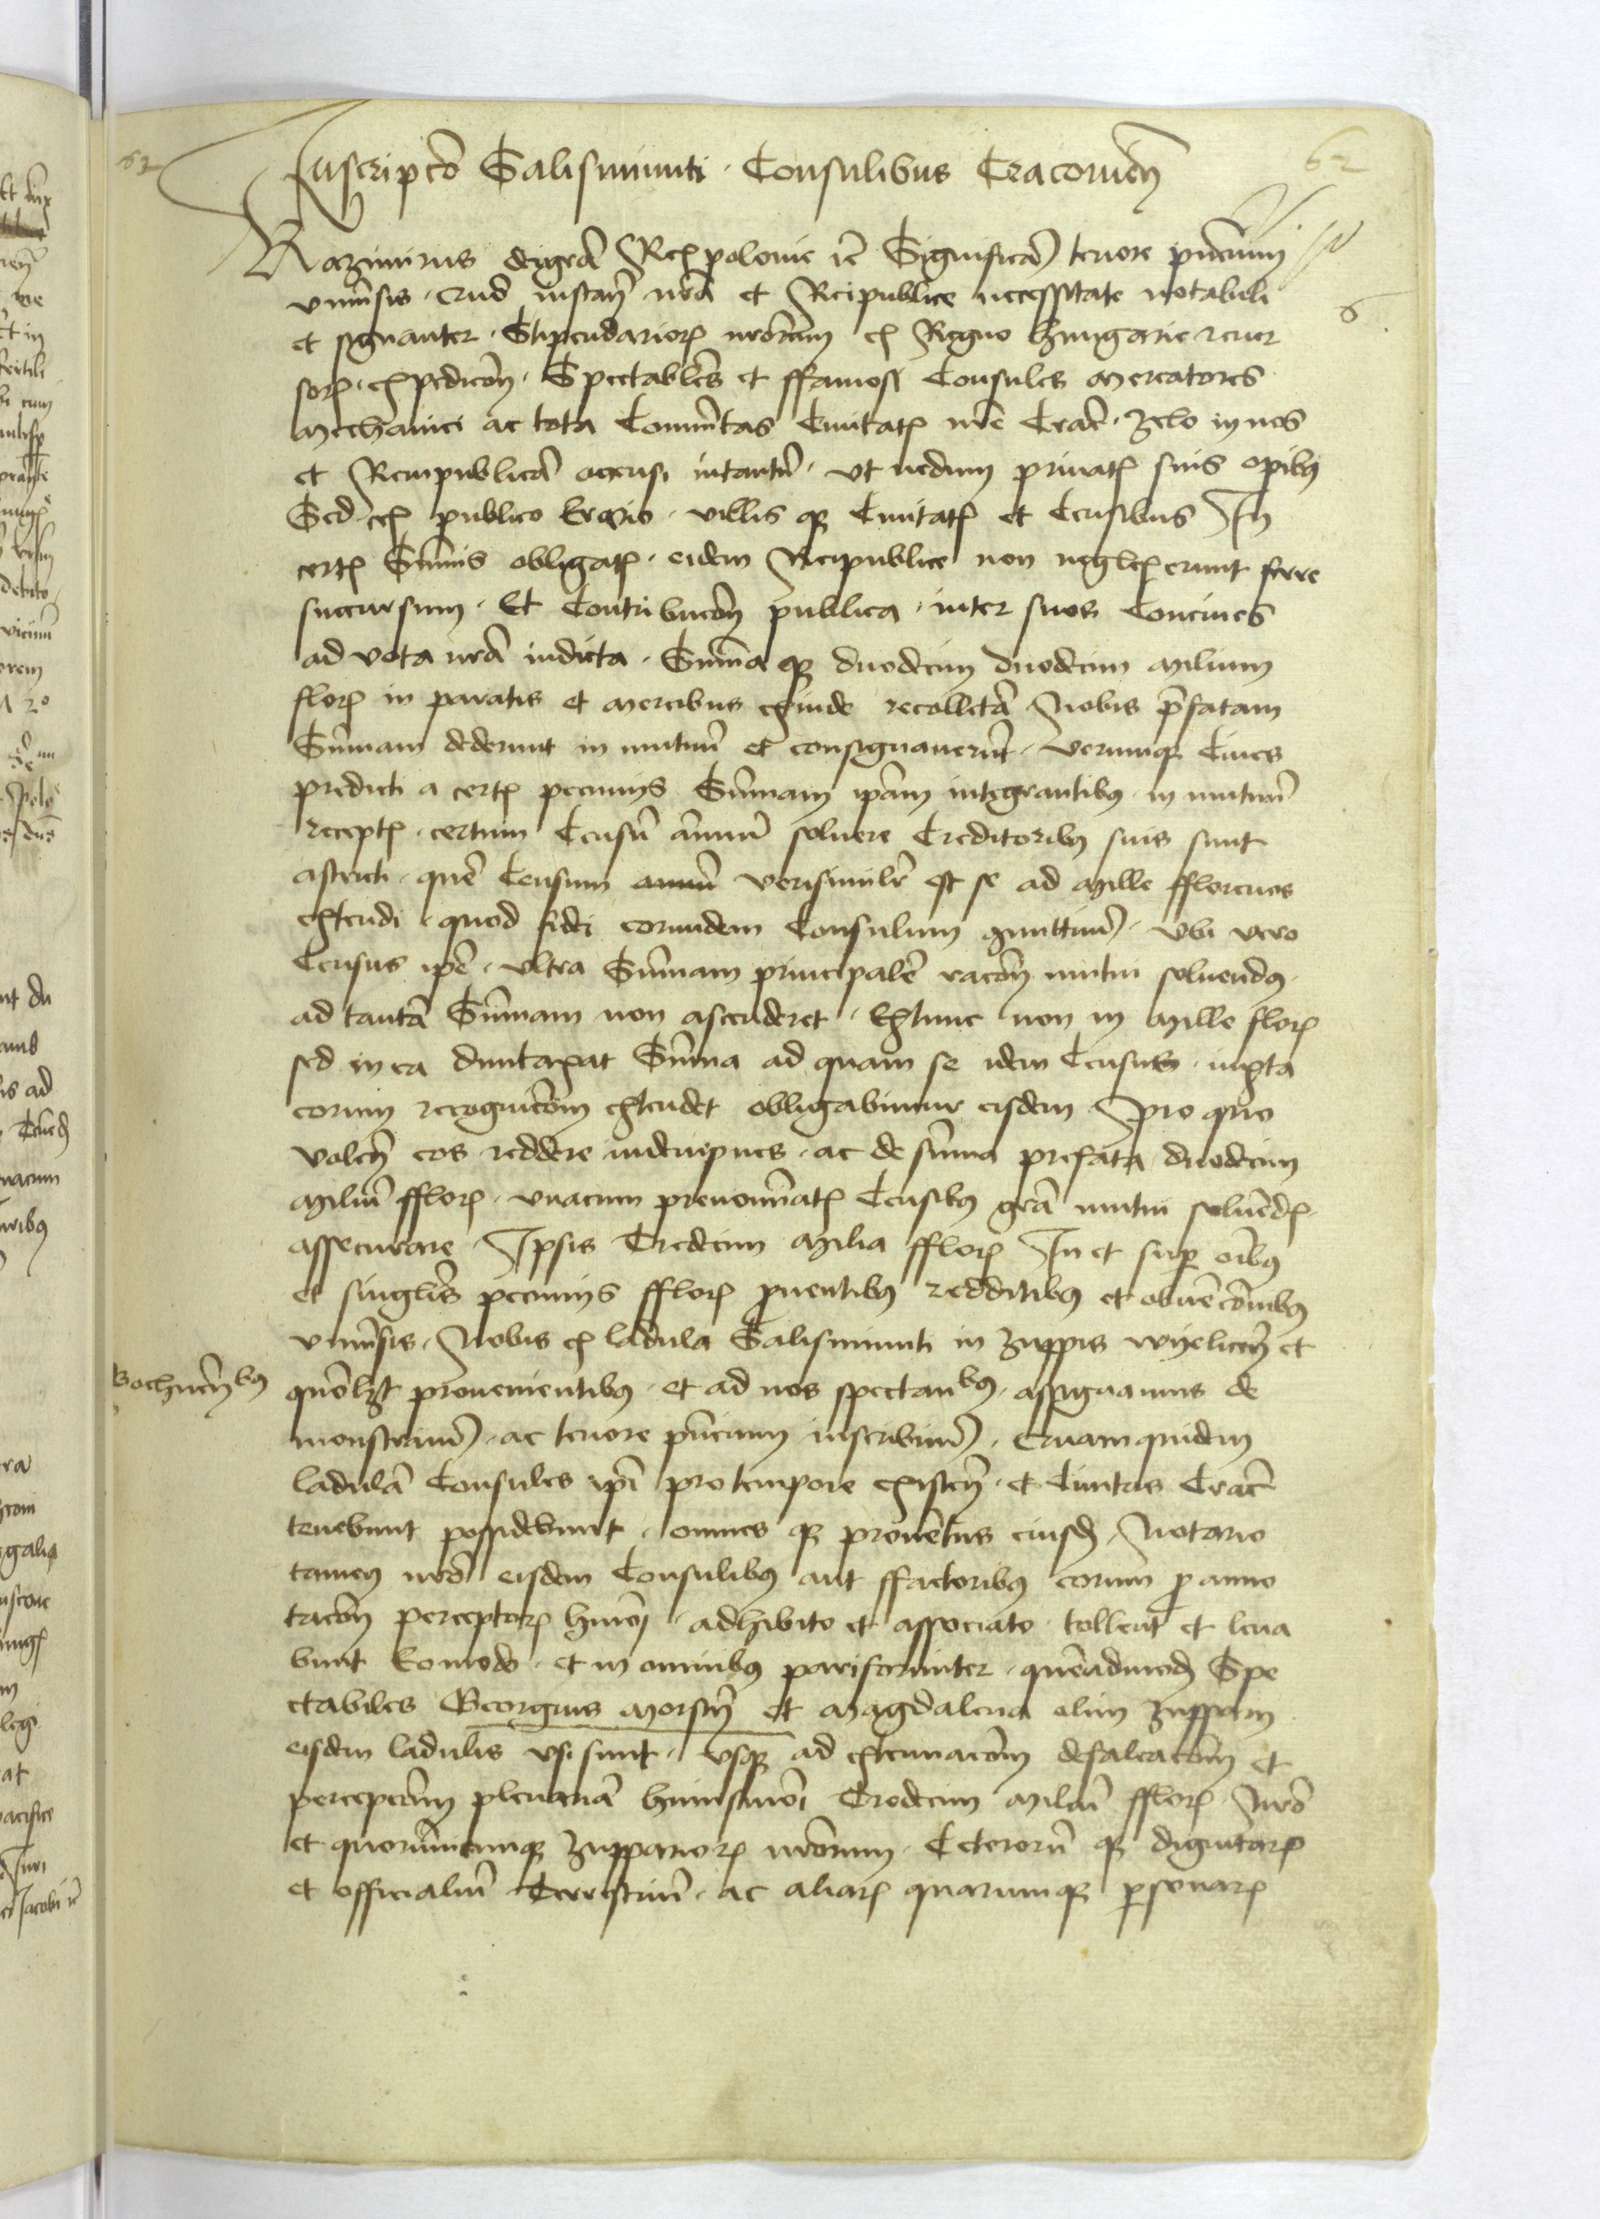 62
62
Inscripcio Salisminuti Consulibus Cracovien
6
Kazimirus dei gra Rex polonie etc Significam tenore pncium
vniuersis quod instan nra et Reipublice necessitate notabili
et signanter Stipendarior nrorum ex Regno Hungarie reuer
sor expedicon Spectabiles et ffamosi Consules Mercatores
Mechanici ac tota Commitas Ciuitat nre Crac zelo in nos
et Rempublica accensi intantu vt nedum priuat suis opibus
Sed ex publico villis qz Ciuitat et Censibus In
cert Summis obligat eidem Reipublice non neglexerunt ferre
succursum Et Contribucon publica inter suos Conciues
ad vota nra indicta Summa qz duodecim duodecim milium
flor in paratis et mercibus exinde recollecta Nobis prefatam
Summam dederunt in mutuu et consignauerut verumqz Ciues
predicti a cert pecuniis Summam ipam integrantibus in mutuu
recept certum Censu annuu soluere Creditoribus suis sunt
astricti que Censum verisimilr est se ad Mille fflorenos
extendi quod fidei eorundem Consulum committim vbi vero
Census ipe vltra Summam principale racon mutui soluendus
ad tanta Summam non ascenderet Extunc non in Mille flor
sed in ea duntaxat Summa ad quam se idem Census iuxta
eorum recognicom extendet obligabimur eisdem pro quo
volen eos reddere indempnes ac de summa prefata duodecim
miliu fflor vnacum prenominat Censibus gra mutui soluend
assecurare Ipsis Tredecim milia fflor In et sup oibus
et singlis pecuniis fflor puentibus redditibus et obuecoibus
vniuersis Nobis ex ladula Salisminuti in zuppis wyelicen et
Bochnenbus quolzt prouenientibus et ad nos spectanbus assignamus de
monstram ac tenore pncium inscribim Quamquidem
ladula Consules ipi pro tempore existen et Ciuitas Crac
tenebunt possidebunt omnes qz prouetus eiusd Notario
tamen nro eisdem Consulibus aut ffactoribus eorum p anno
tacon perceptor huiusmoi adhibito et associato tollent et leua
bunt eo modo et in omnibus pariformiter quemadmod Spe
ctabiles Georgius Morstin et Magdalena olim zuppam
eisdem ladulis vsi sunt vsqz ad extenuacom defalcacom et
percepcom plenaria huiusmoi Tredecim miliu fflor Nro
et quorumcunqz zupparior nrorum Ceterorum qz dignitar
et officialiu Terrestriu ac aliar quarumqz personar